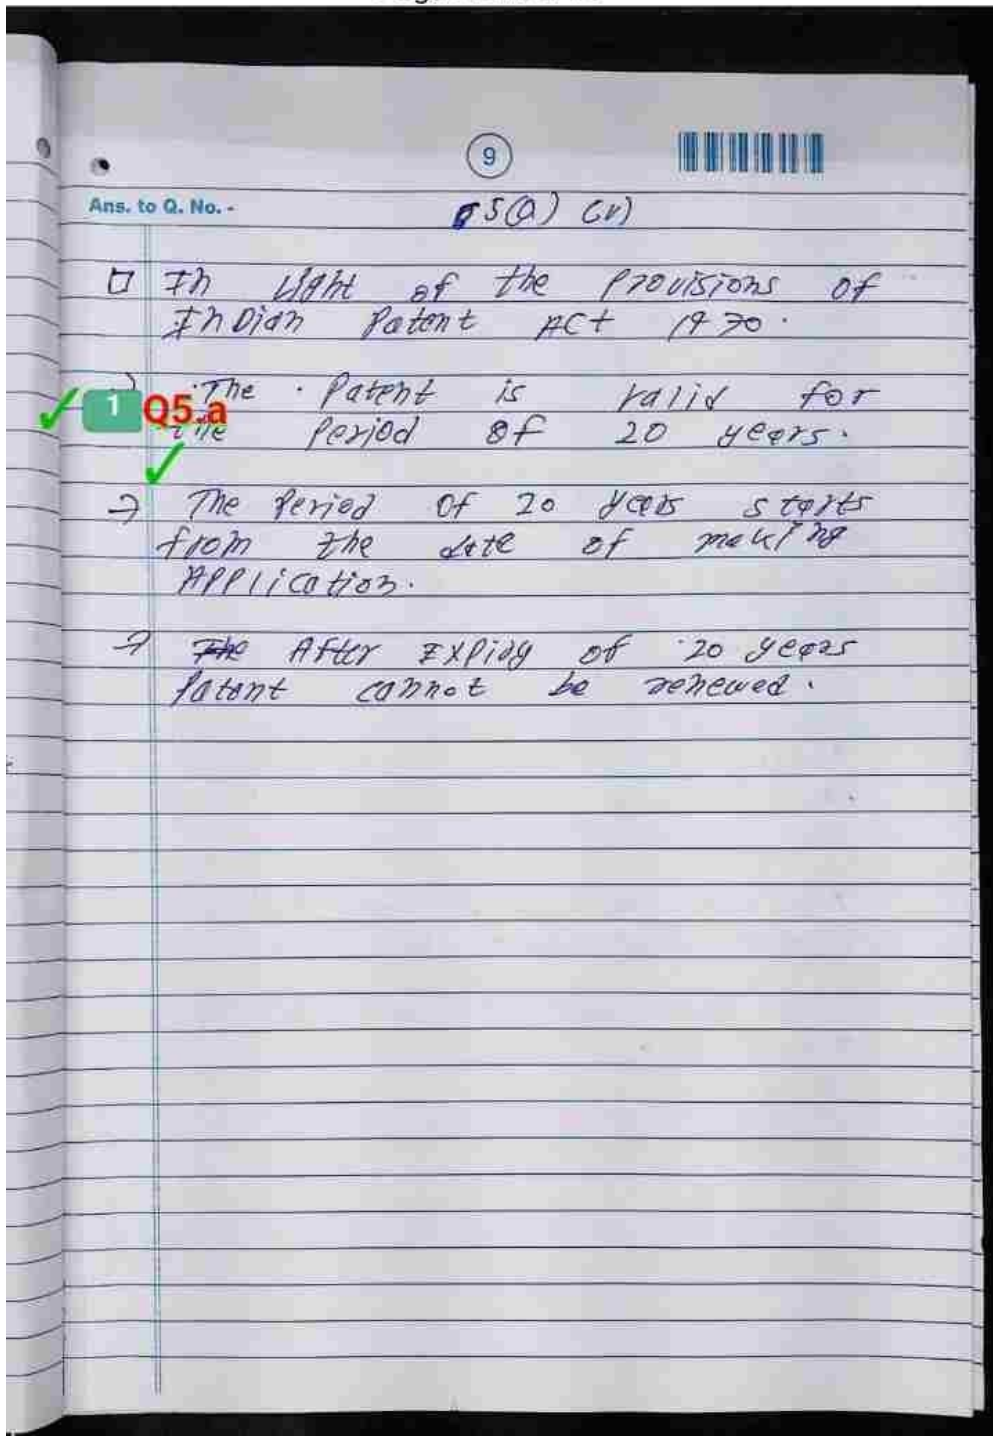 9
Ans. to Q. No. - 5(a) (v)
In Light of the Provisions of
Indian Patent Act 1970.
The Patent is valid for
1 Q5.a
the Period of 20 years.
→ The Period of 20 years starts
from the date of making
Application.
→ The After Expiry of 20 years
Patent cannot be renewed.